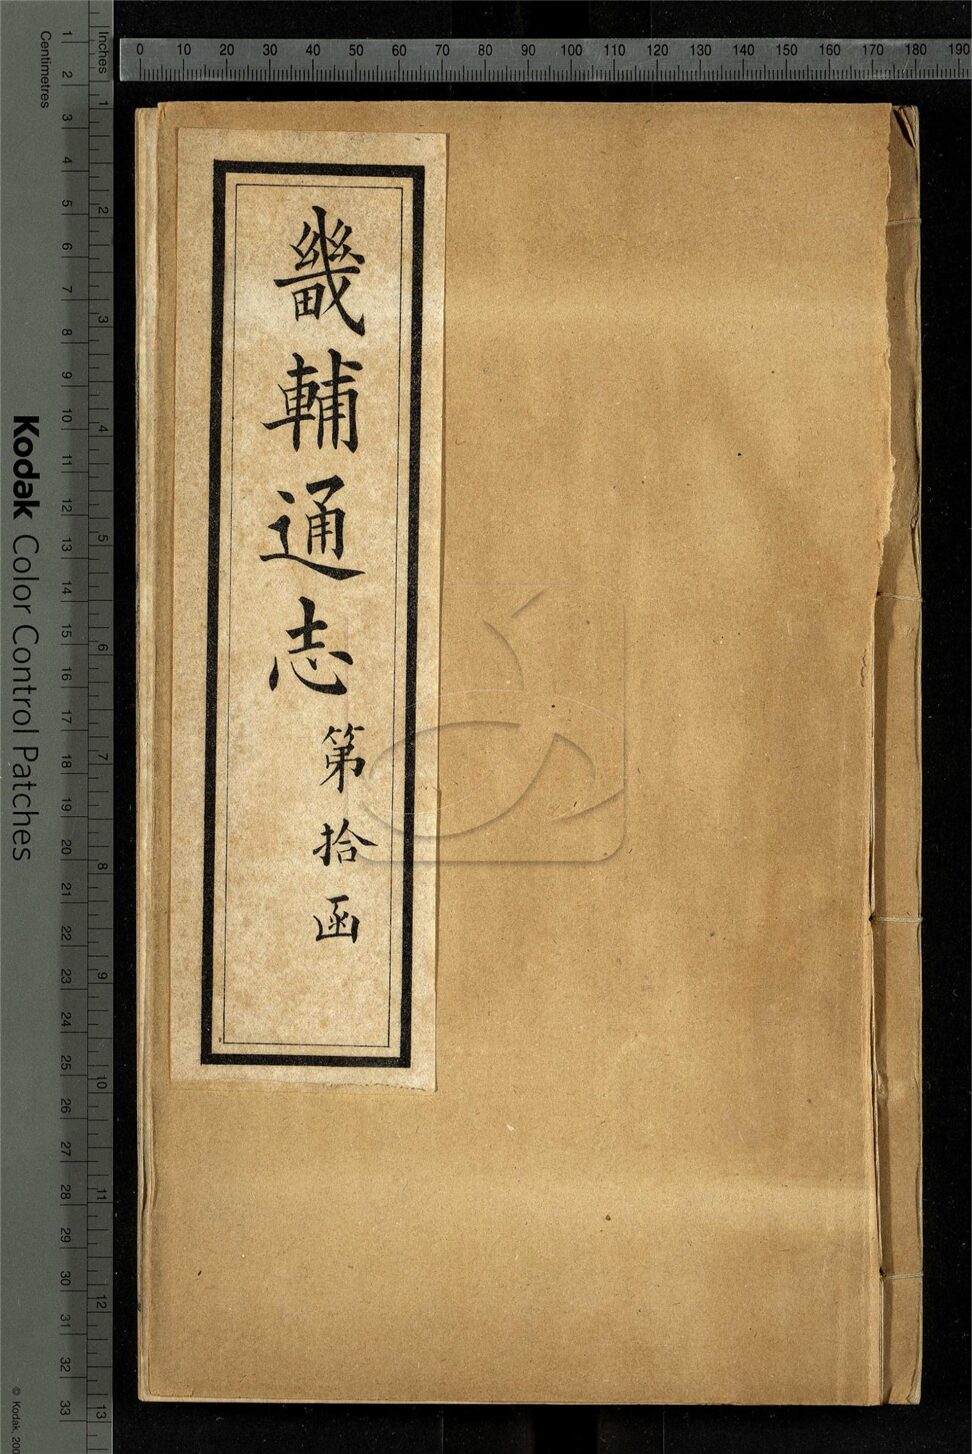 畿輔通志
第拾函
0 10 20 30 40 50 60 70 80 90 100 110 120 130 140 150 160 170 180 190
Inches
1 2 3 4 5 6 7 8 9 10 11 12 13
Centimetres
1 2 3 4 5 6 7 8 9 10 11 12 13 14 15 16 17 18 19 20 21 22 23 24 25 26 27 28 29 30 31 32 33
Kodak Color Control Patches
© Kodak,